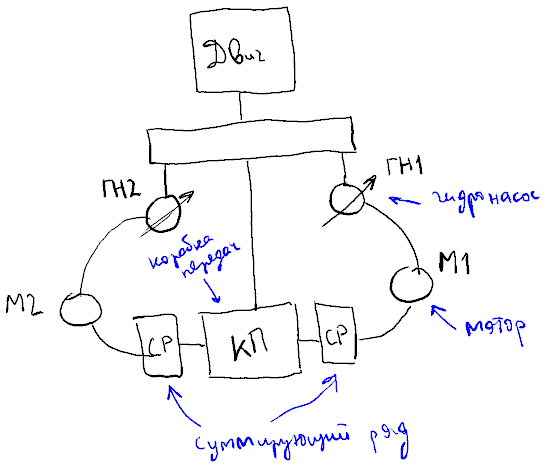 Двиг
ГН2
ГН1
гидронасос
коробка
передач
М2
М1
мотор
СР
КП
СР
суммирующий ряд